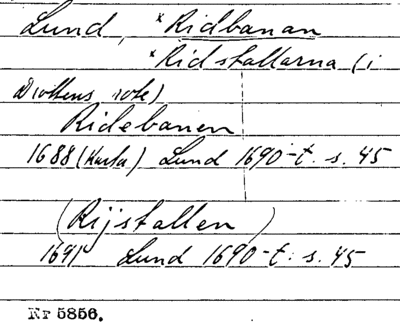 Lund, *Ridbanan
*Ridstallarna (i
Drottens rote)
Ridebanen
1688 (Karta) Lund 1690-t. s. 45
(Rijstallen)
1691 Lund 1690-t. s. 45
Nr 5856.